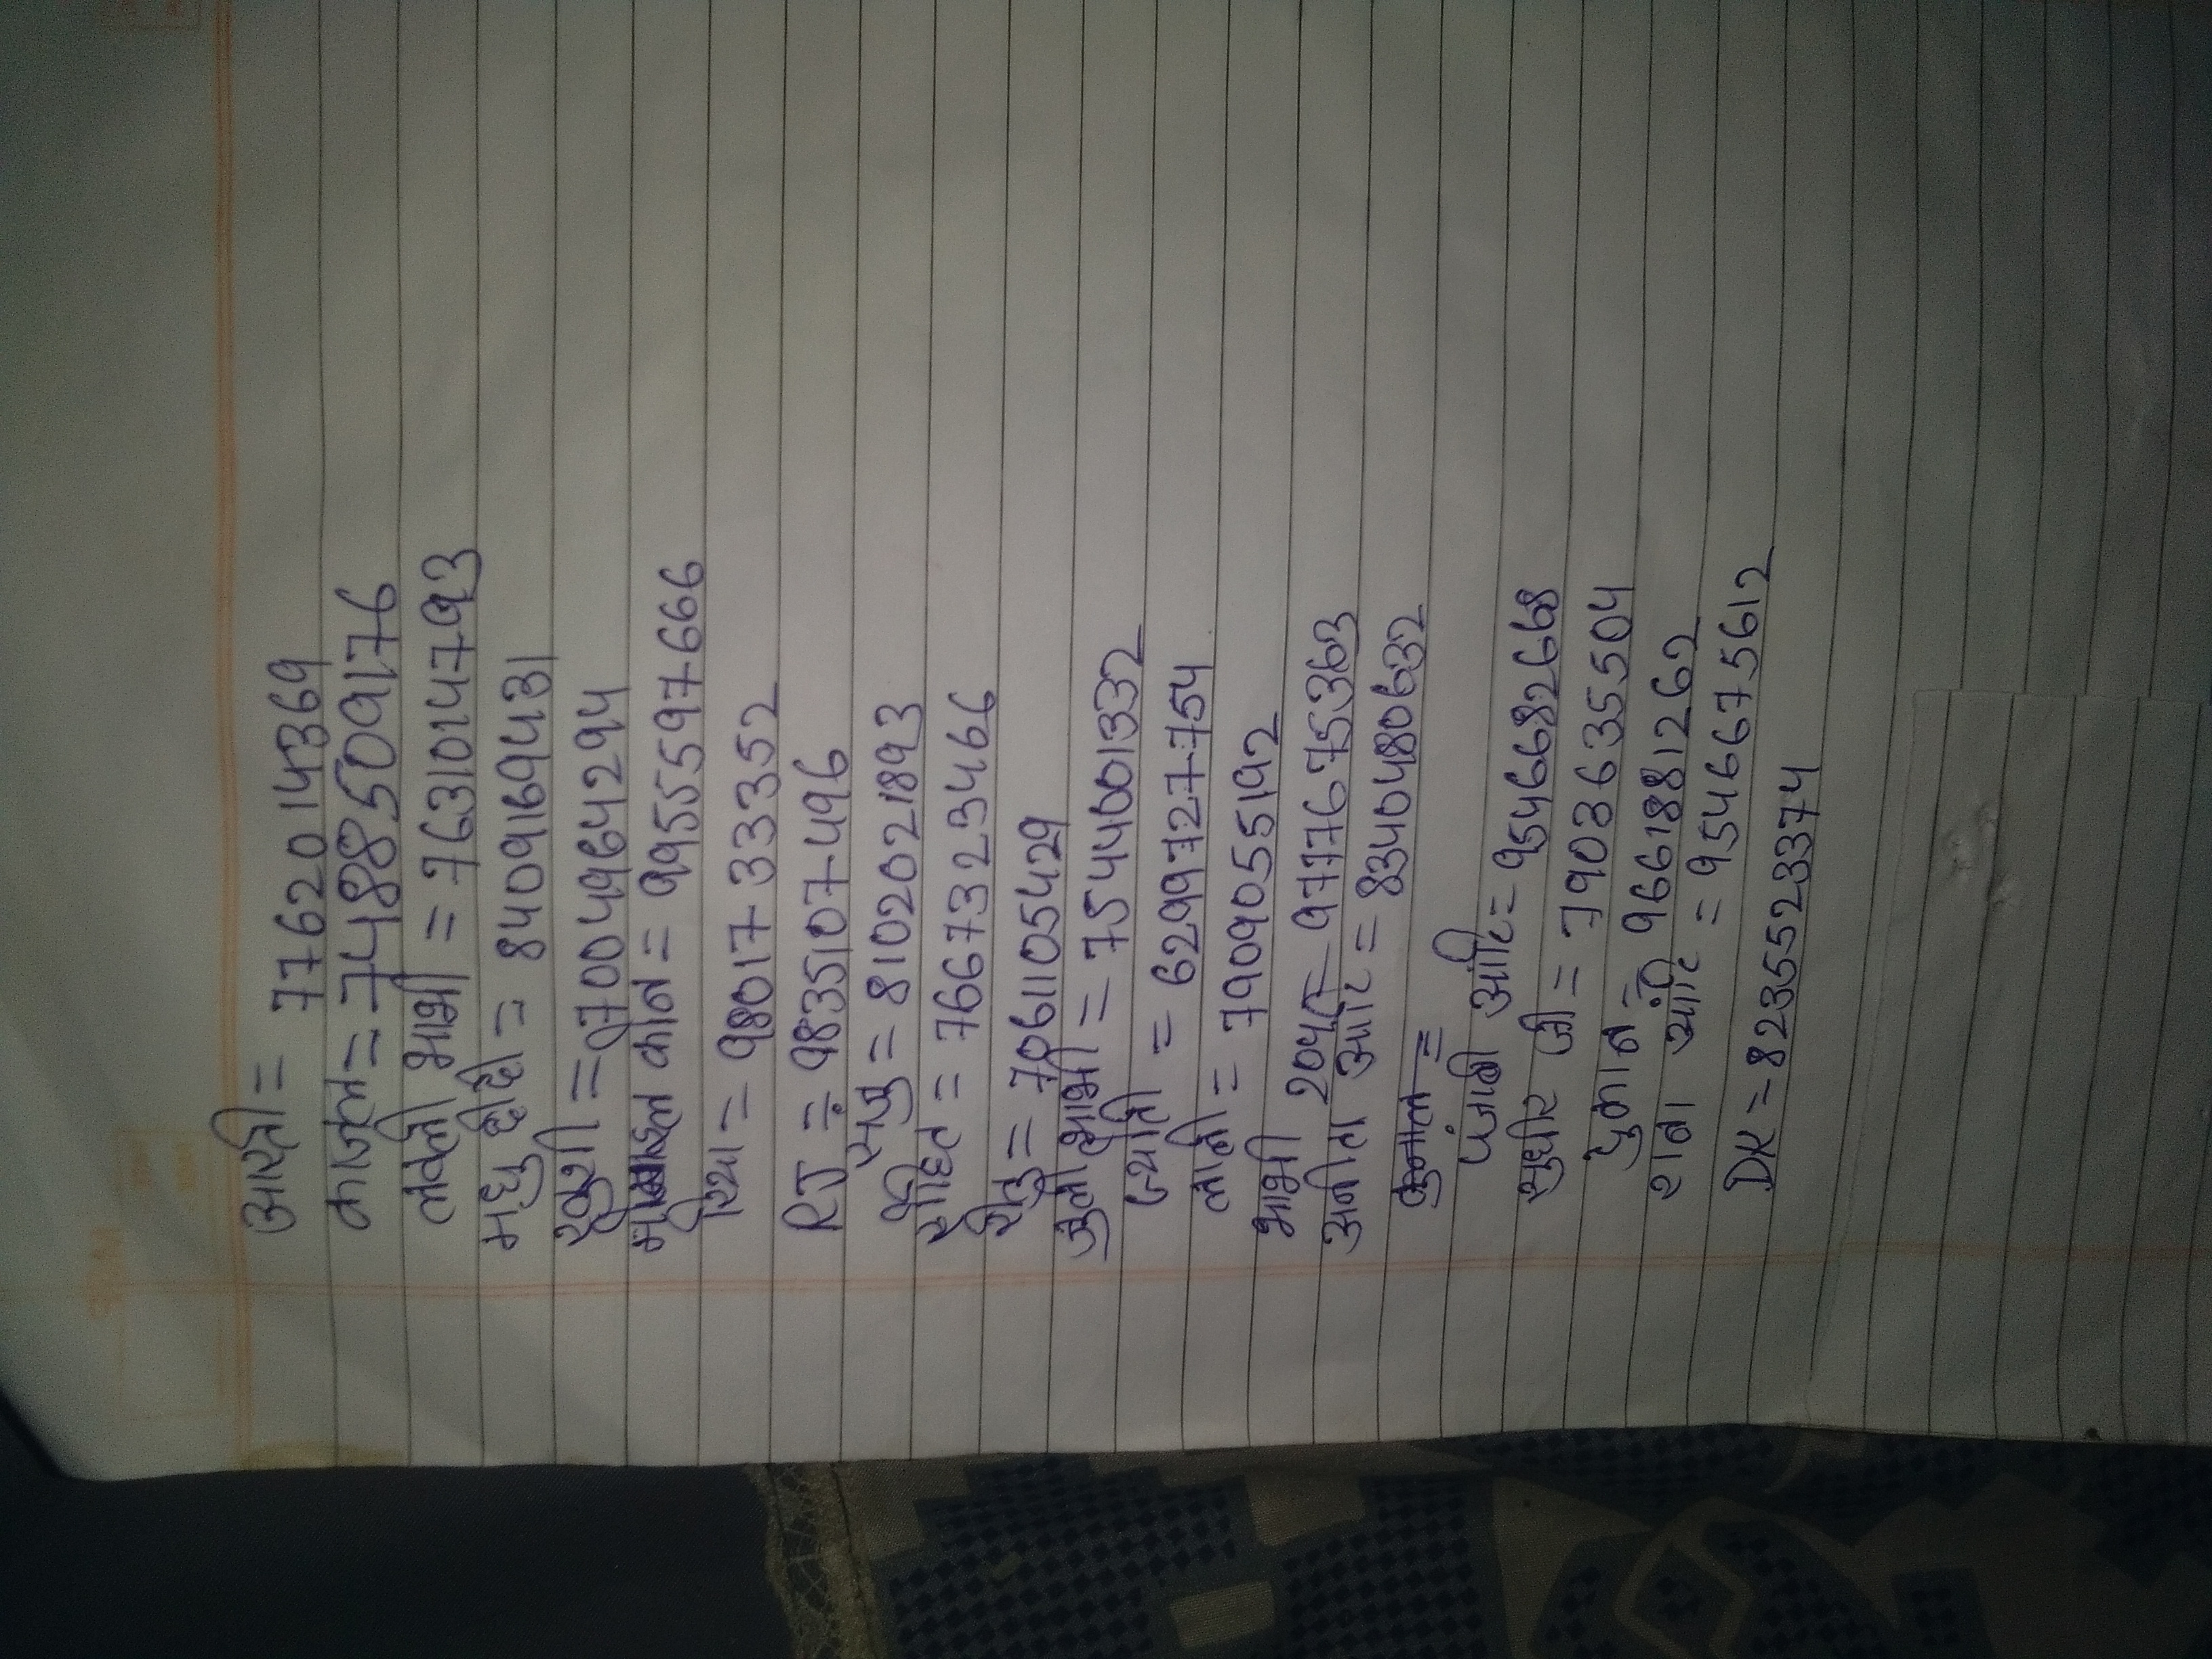 आरती = 7762014369
काजल = 7488509176
लवली भाभी = 7631014793
मधु दीदी = 8409169431
खुशी = 7004964294
कॉल = 9955597666
रिया = 9801733352
RJ = 9835107496
संजु = 8102021893
रोहित = 7667323466
रितु = 7061105429
जुली भाभी = 7544001332
ज्योति = 6299727754
लाली = 7909055192
भाभी 204 = 9777675363
अनीता आंटि = 8340480632
पंजाबी आंटि = 9546682668
सुधीर जी = 7903635504
= 9661881262
आंटि = 9546675612
DK = 8235523374